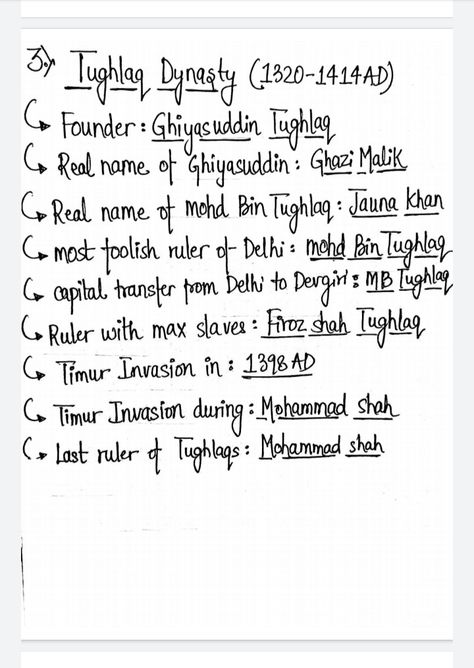 3) Tughlaq Dynasty (1320-1414AD)
Founder : Ghiyasuddin Tughlaq
Real name of Ghiyasuddin : Ghazi Malik
Real name of mohd Bin Tughlaq : Jauna Khan
most foolish ruler of Delhi : mohd Bin Tughlaq
capital transfer from Delhi to Devgiri : MB Tughlaq
Ruler with max slaves : Firoz shah Tughlaq
Timur Invasion in : 1398 AD
Timur Invasion during : Mohammad shah
Last ruler of Tughlaqs : Mohammad shah